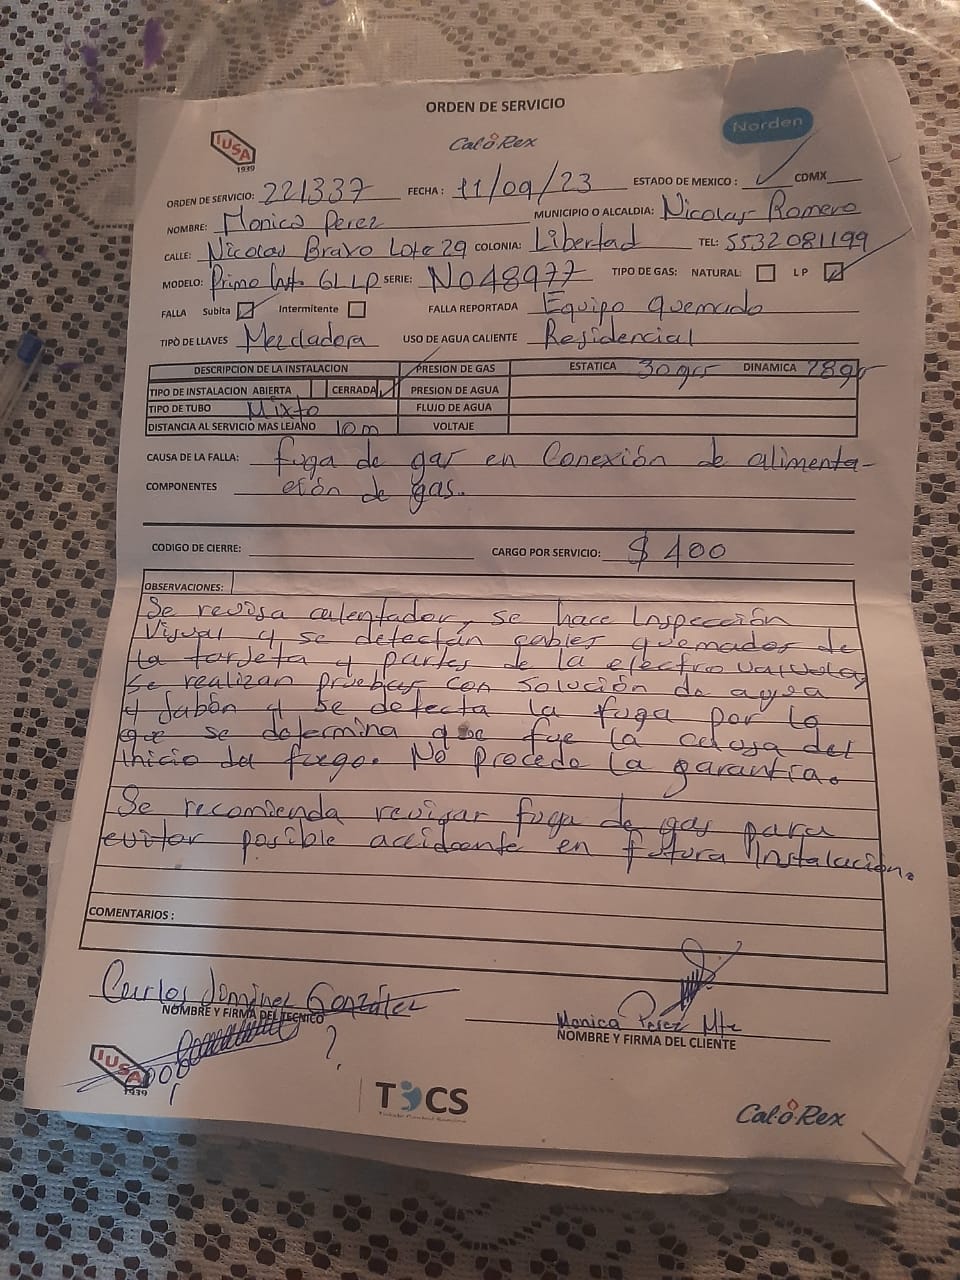 ORDEN DE SERVICIO
IUSA
1939
Cal-o-Rex
Norden
ORDEN DE SERVICIO: 221337 FECHA: 11/09/23 ESTADO DE MEXICO: ✓ CDMX
NOMBRE: Monica Perez MUNICIPIO O ALCALDIA: Nicolas Romero
CALLE: Nicolas Bravo Lote 29 COLONIA: Libertad TEL: 5532081199
MODELO: Primo Int. 6L LP SERIE: N048977 TIPO DE GAS: NATURAL: L P
FALLA Subita Intermitente FALLA REPORTADA Equipo quemado
TIPO DE LLAVES Mezcladora USO DE AGUA CALIENTE Residencial
DESCRIPCION DE LA INSTALACION PRESION DE GAS ESTATICA 30grs DINAMICA 28gr
TIPO DE INSTALACION ABIERTA CERRADA ✓ PRESION DE AGUA
TIPO DE TUBO Mixto FLUJO DE AGUA
DISTANCIA AL SERVICIO MAS LEJANO 10m VOLTAJE
CAUSA DE LA FALLA: fuga de gas en Conexión de alimenta-
COMPONENTES ción de gas.
CODIGO DE CIERRE: CARGO POR SERVICIO: $ 400
OBSERVACIONES:
Se revisa calentador, se hace Inspección
Visual y se detectan cables quemados de
la tarjeta y partes de la electro valvula,
se realizan pruebas con solución de agua
y Jabón y se detecta la fuga por lo
que se determina que fue la causa del
inicio del fuego. No procede la garantía.
Se recomienda revisar fuga de gas para
evitar posible accidente en futura Instalación.
COMENTARIOS :
Carlos Jiminez González
NOMBRE Y FIRMA DEL TECNICO
Monica Perez Mtz
NOMBRE Y FIRMA DEL CLIENTE
?
IUSA
1939
TCS
Cal-o-Rex